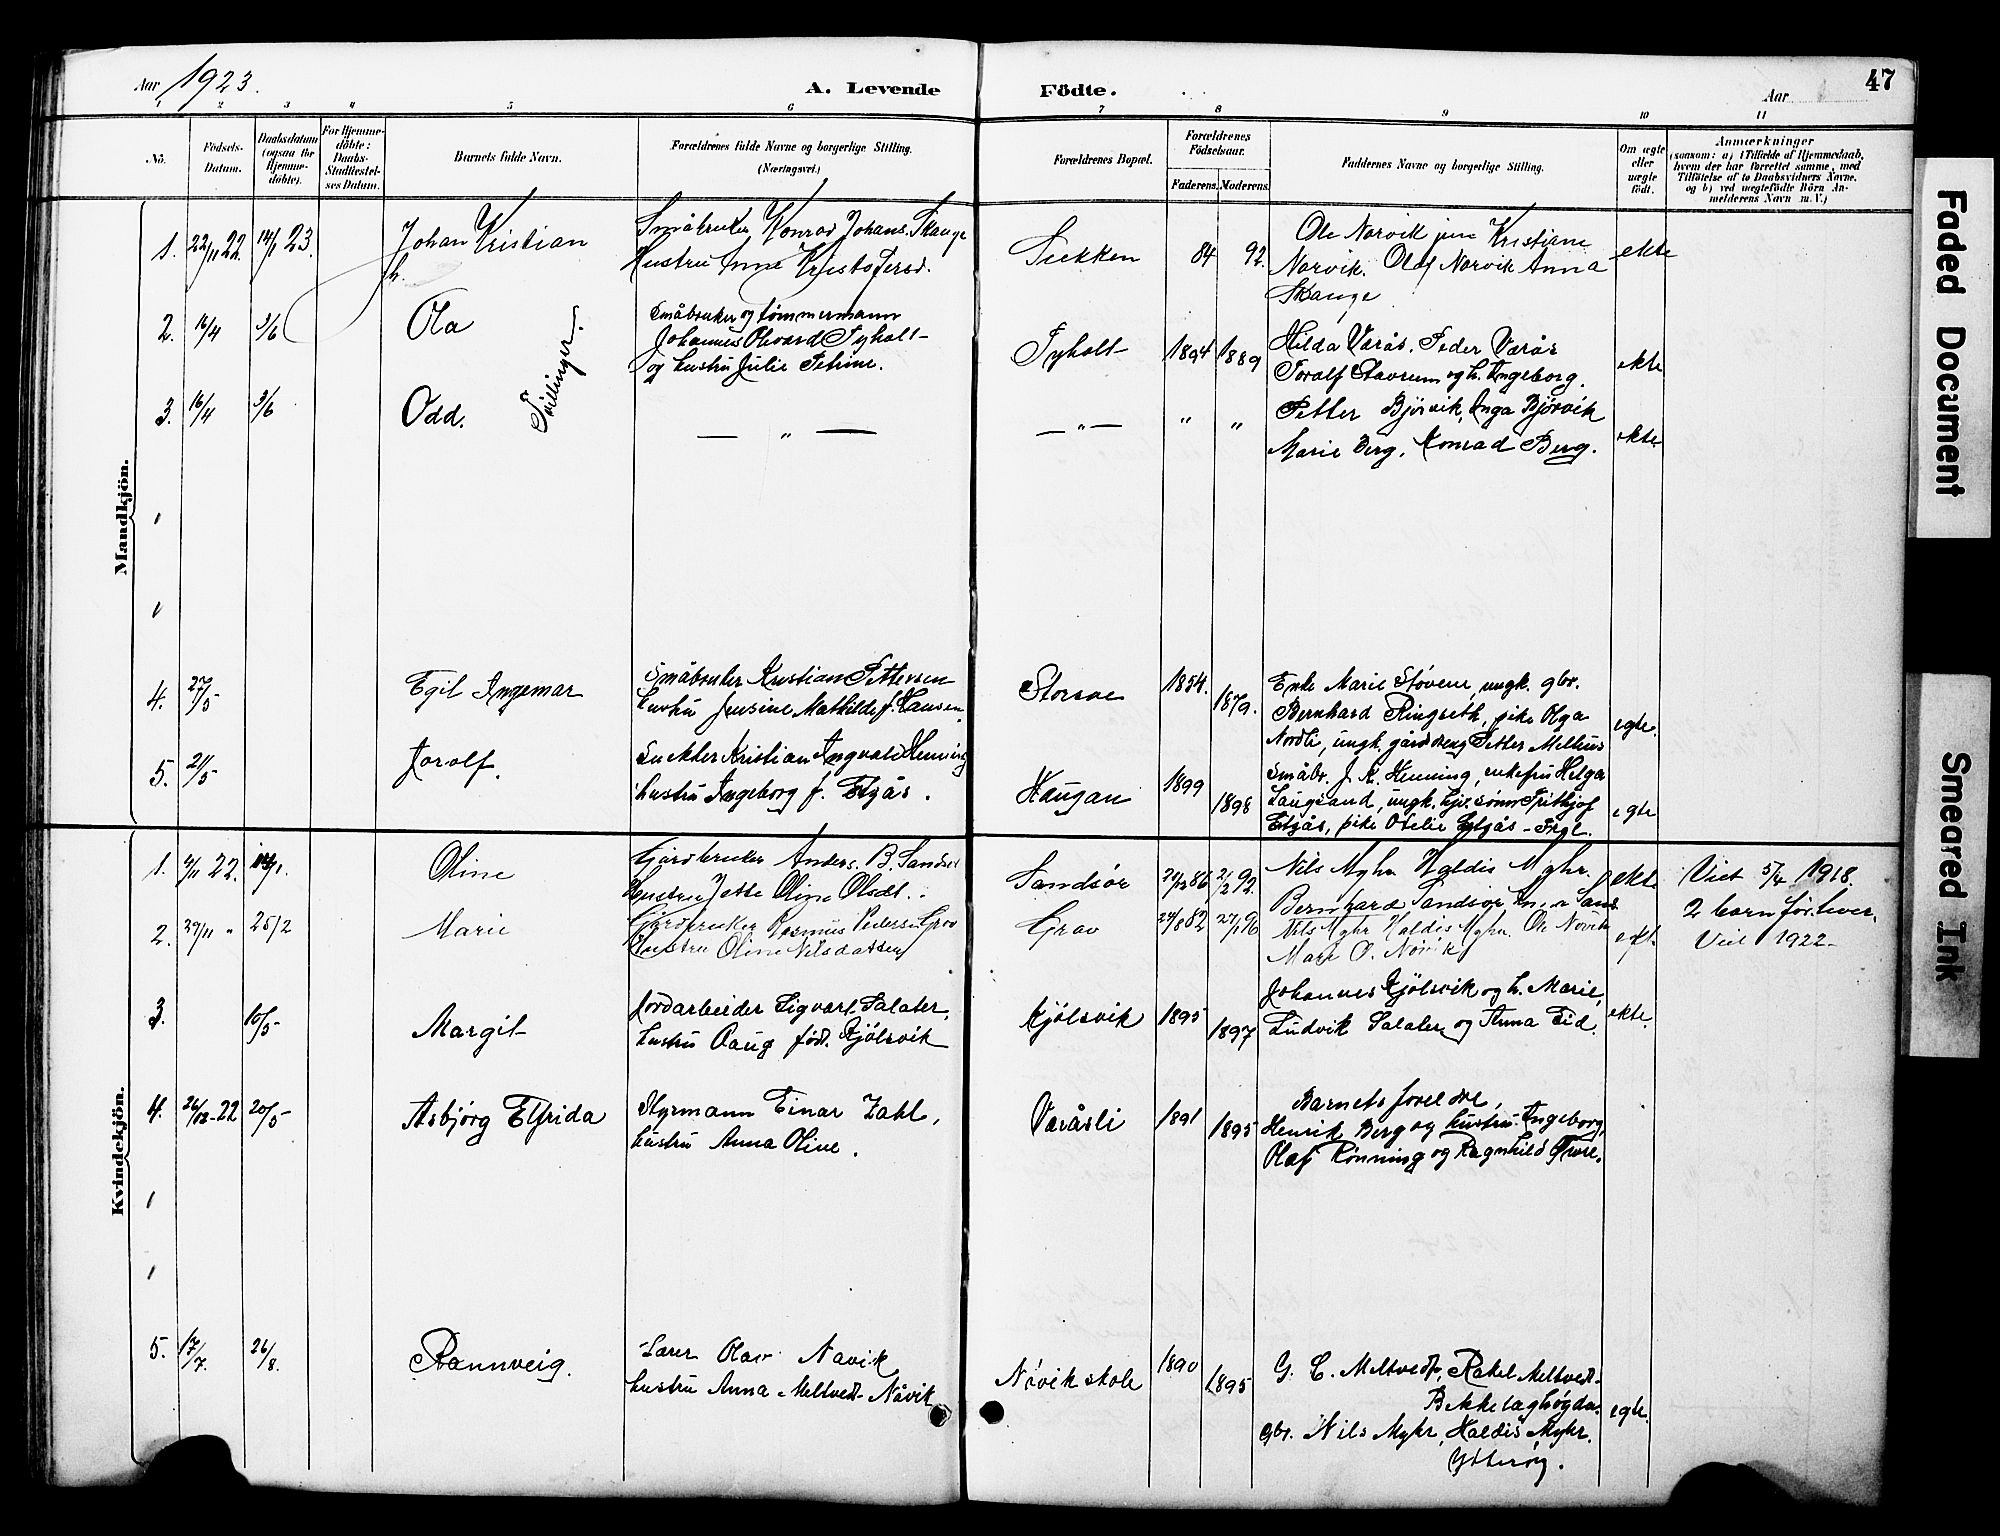 Aar 1923.
A. Levende Födte.
Aar
47
1 2 3 4 5 6 7 8 9 10 11
No.
Födsels-Datum.
Daabsdatum (ogsaa for Hjemme-döbte).
For Hjemme-döbte: Daabs-Stadfæstel-ses Datum.
Barnets fulde Navn.
Forældrenes fulde Navne og borgerlige Stilling. (Næringsvei.)
Forældrenes Bopæl.
Forældrenes Födselsaar.
Faderens. Moderens.
Faddernes Navne og borgerlige Stilling.
Om ægte eller uægte födt.
Anmærkninger
(saasom: a) i Tilfælde af Hjemmedaab, hvem der har forrettet samme, med Tilföielse af to Daabsvidners Navne, og b) ved uægtefödte Börn An-melderens Navn m. V.)
Mandkjön.
1. 22/11 22. 14/1 23. Johan Kristian
Småbruker Konrad Johans. Skauge
Hustru Anne Kristofersd.
Sukken 84 92.
Ole Norvik jun Kristiane
Norvik. Olaf Norvik Anna
Skauge
ekte
2. 16/4 3/6 Ola
Tvillinger.
Småbruker og tømmermann
Johannes Olvard Tyholt
og hustru Julie Petrine.
Tyholt 1894 1889
Hilda Værås. Peder Værås
Toralf Stavrum og h. Ingeborg.
ekte
3. 16/4 3/6 Odd.
— " —
— " — " "
Petter Bjørvik, Inga Bjørvik
Marie Berg, Konrad Berg.
ekte
4. 27/5 Egil Ingemar
Småbruker Kristian Pettersen
hustru Jensine Mathilde f. Hansen.
Storsve 1854. 1879.
Enke Marie Støvene, ungk. gbr.
Bernhard Ringseth, pike Olga
Nordli, ungk. gårddreng Petter Melhus
egte.
5. 21/5 Jorolf.
Snekker Kristian Ingvald Henning
hustru Ingeborg f. Elgås.
Haugan 1899 1898
Småbr. J. K. Henning, enkefru Helga
Laugsand, ungk. gbr.sønn Fritjof
Elgås, pike Otelie Elgås
egte
Kvindekjön.
1. 4/11 22. 14/1. Oline
Gårdbruker Anders. B. Sandsør
Hustru Jette Oline Olsdt.
Sandsør 21/12 86 21/2 92.
Nils Myhr Haldis Myhr.
Bernhard Sandsør
ekte
Viet 5/4 1918.
2 barn før. lever.
2. 29/11 " 25/2 Marie
Gårdbruker Rasmus Pedersen Grov
Hustru Oline Nilsdatter
Grav 24/8 82 27/1 96
Nils Myhr Haldis Myhr. Ole Növik
Marie O. Növik
ekt.
Viet 1922
3. 10/5 Margit
Jordarbeider Sigvart Salater,
hustru Aaug født. Kjölsvik
Kjölsvik 1895 1897
Johannes Kjölsvik og h. Marie,
Ludvik Salater og Anna Eid.
ekte.
4. 26/12-22 20/5 Asbjörg Elfrida
Styrmann Einar Zahl,
hustru Anna Oline.
Væråsli 1891 1895
Barnets foreldre,
Henrik Berg og hustru Ingeborg,
Olaf Rönning og Ragnhild
5. 17/7 26/8. Rannveig.
Lærer Olav Navik
hustru Anna Meltvedt-Nåvik
Növik skole 1890 1895
G. C. Meltvedt, Rakel Meltvedt
Bekkelagshögda.
Gbr. Nils Myhr, Haldis Myhr.
Ytteröy.
egte.
Faded Document
Smeared Ink